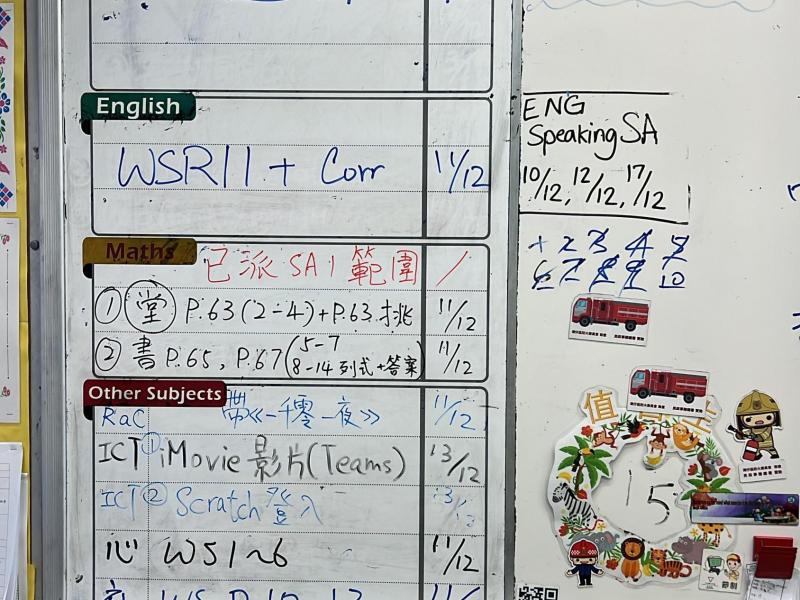 English
WSR11 + Corr 11/12
Maths
已派 SA1 範圍 /
① 堂 P.63 (2-4) + P.63 挑 11/12
② 書 P.65, P.67 (5-7
8-14 列式+答案) 11/12
Other Subjects
RaC 帶《一千零一夜》 11/12
ICT ① iMovie 影片 (Teams) 13/12
ICT ② Scratch 登入 13/12
心 WS1~6 11/12
ENG
Speaking SA
10/12, 12/12, 17/12
10
值
15
節制